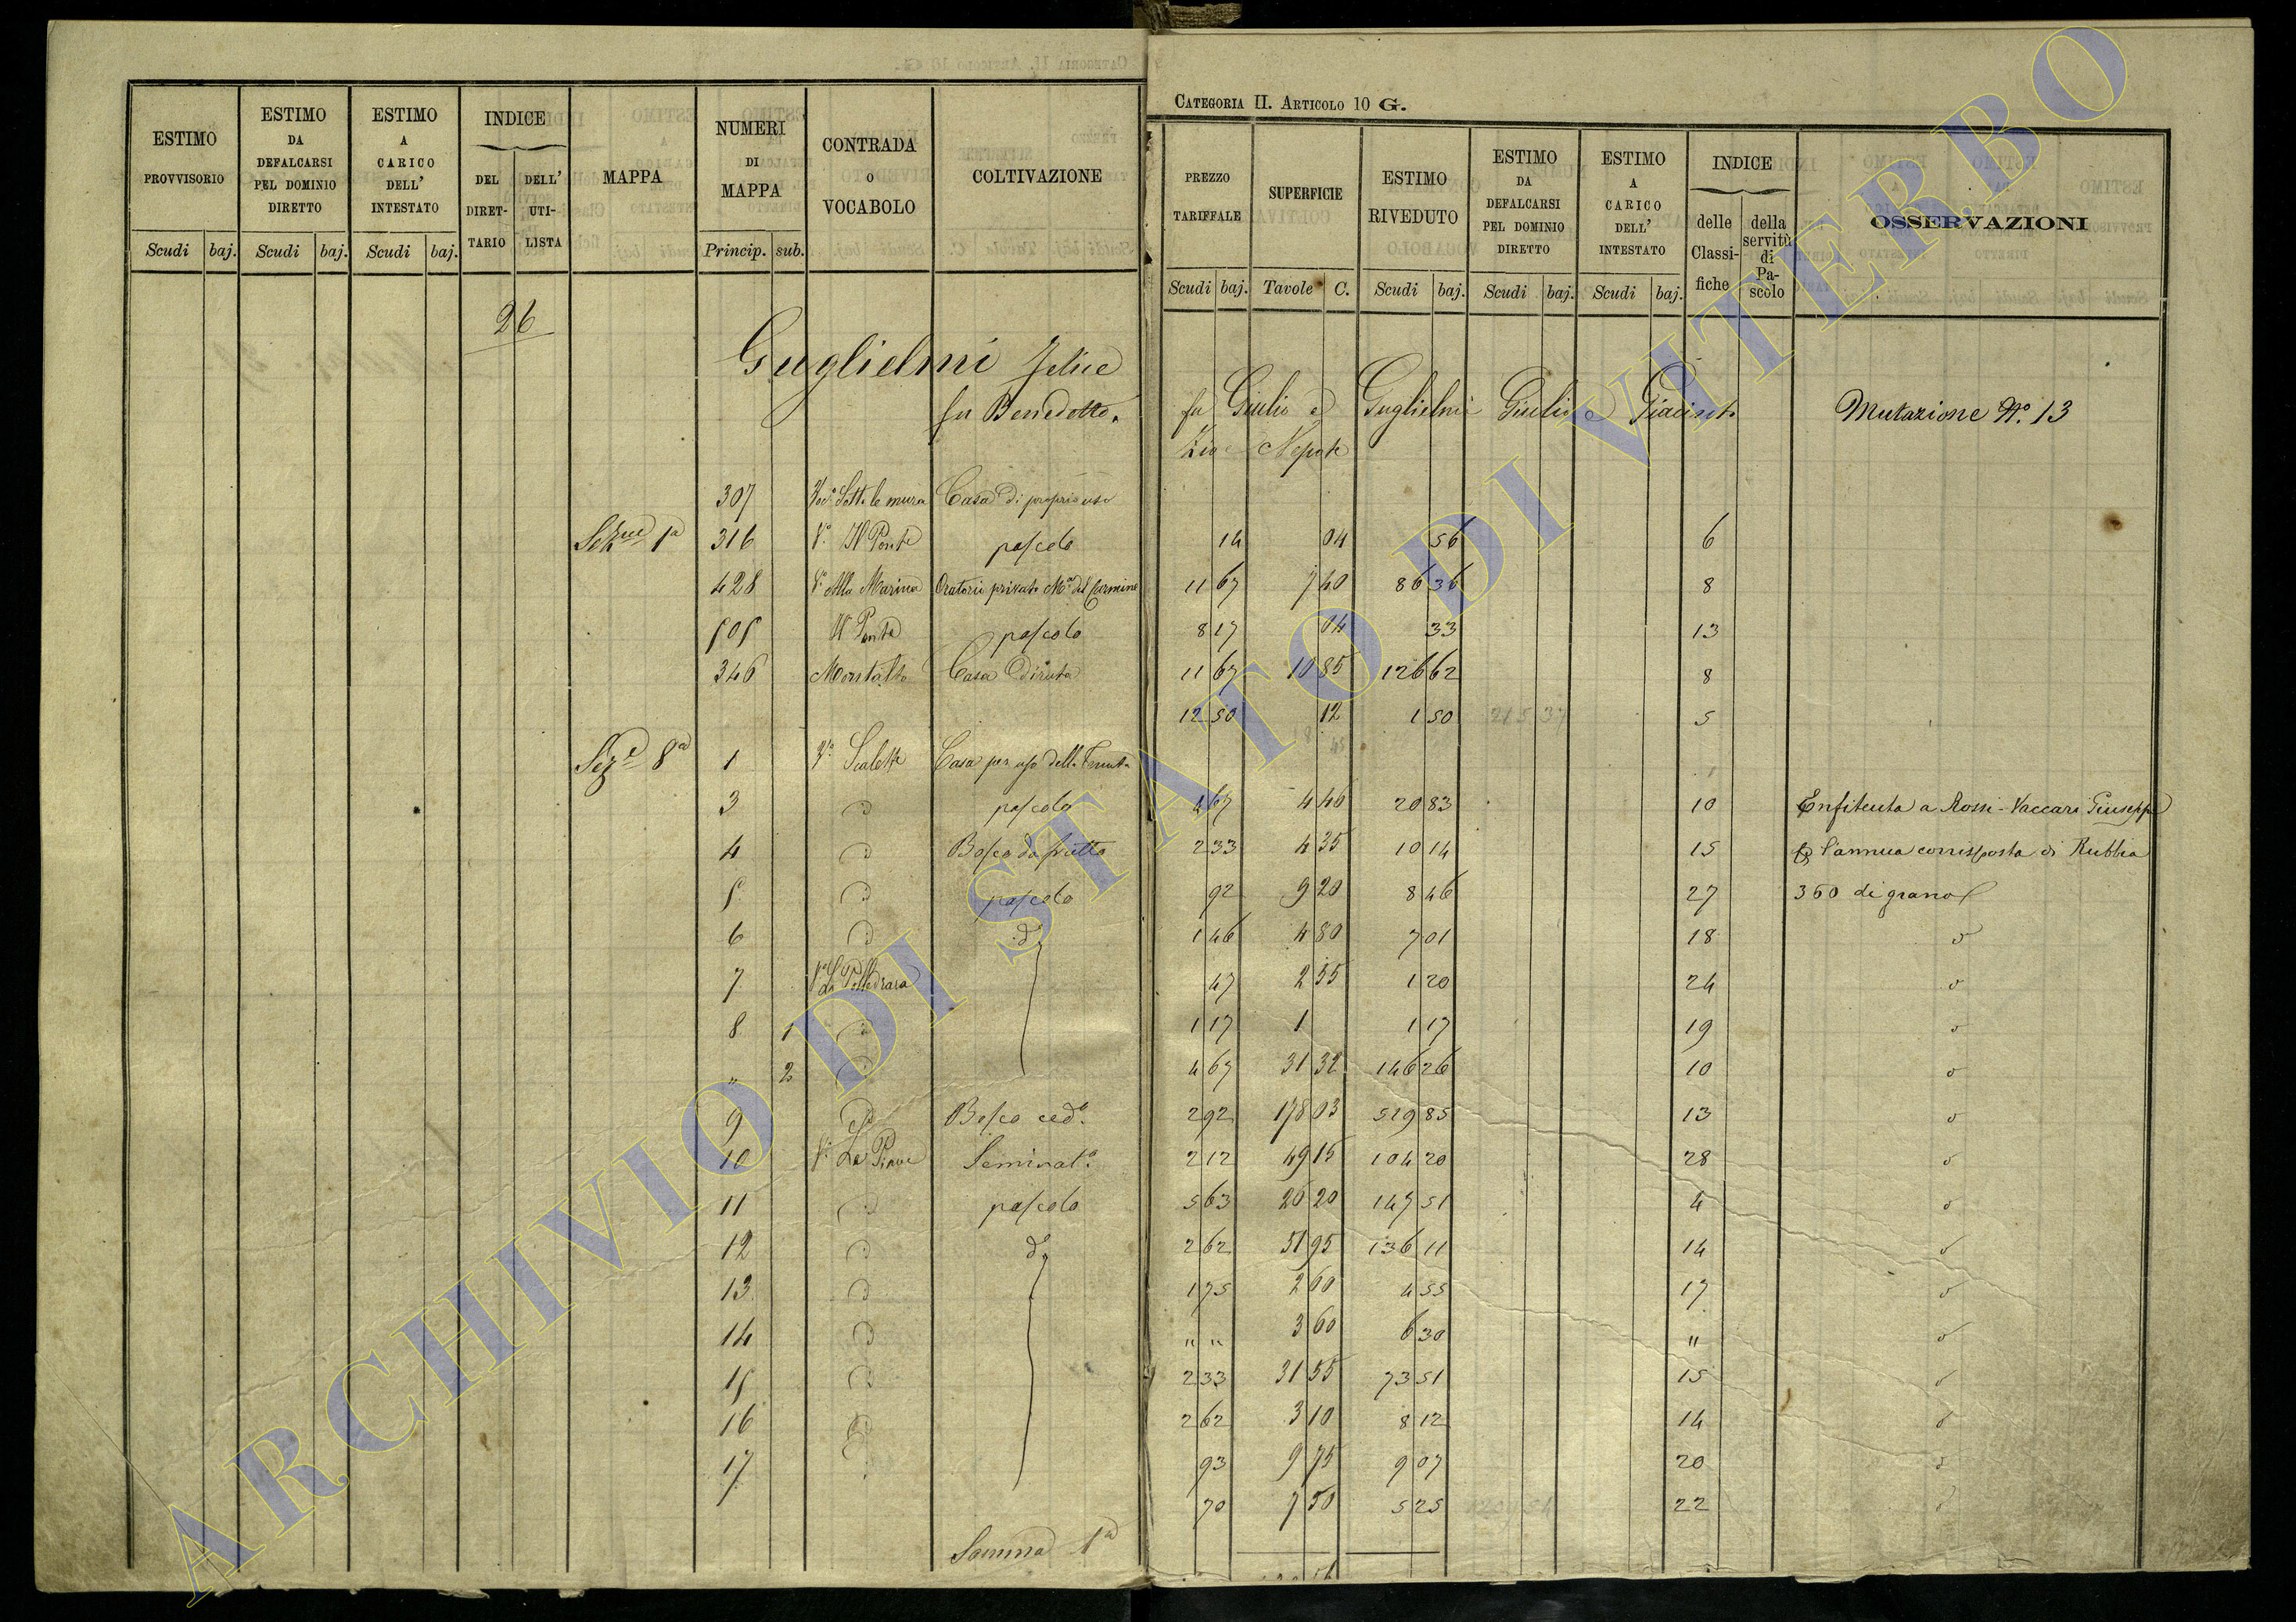 CATEGORIA II. ARTICOLO 10 G.
ESTIMO PROVVISORIO
ESTIMO DA DEFALCARSI PEL DOMINIO DIRETTO
ESTIMO A CARICO DELL' INTESTATO
INDICE
DEL DIRET-TARIO
DELL' UTI-LISTA
MAPPA
NUMERI DI MAPPA
CONTRADA O VOCABOLO
COLTIVAZIONE
PREZZO TARIFFALE
SUPERFICIE
ESTIMO RIVEDUTO
ESTIMO DA DEFALCARSI PEL DOMINIO DIRETTO
ESTIMO A CARICO DELL' INTESTATO
INDICE
delle Classi-fiche
della servitù di Pa-scolo
OSSERVAZIONI
Scudi baj. Scudi baj. Scudi baj. Princip. sub. Scudi baj. Tavole C. Scudi baj. Scudi baj. Scudi baj.
26
Guglielmi Felice
fu Benedetto.
fu Giulio e Guglielmi Giulio e Giacinto
Zio e Nepote
Mutazione N.° 13
307 Sotto le mura Casa di proprio uso
Sezne 1a 316 V.° Il Ponte pascolo
428 V.° Alla Marina Oratorio privato M.a del Carmine
505 Il Ponte pascolo
346 Montalto Casa Diruta
Seze 8a 1 Scalette Casa per uso della Tenuta
3 d pascolo
4 d Bosco da frutto
5 d pascolo
6 d do
7 La Polledrara
8 1 d
" 2 d
9 do Bosco ced.o
10 V.° Le Piane Seminat.o
11 d pascolo
12 d do
13 d
14 d
15 d
16 d
17 d
Somma 1a
14 04 56 6
11 67 7 40 86 36 8
8 17 04 33 13
11 67 10 85 126 62 8
12 50 12 1 50 215 37 5
4 67 4 46 20 83 10 Enfiteuta a Rossi-Vaccari Giuseppe
2 33 4 35 10 14 15 p l'annua corrisposta di Rubbia
92 9 20 8 46 27 360 di grano
1 46 4 80 7 01 18 d
47 2 55 1 20 24 d
1 17 1 1 17 19 d
4 67 31 32 146 26 10 d
2 92 178 03 519 85 13 d
2 12 49 15 104 20 28 d
5 63 26 20 147 51 4 d
2 62 51 95 136 11 14 d
1 75 2 60 4 55 17 d
" " 3 60 6 30 " d
2 33 31 55 73 51 15 d
2 62 3 10 8 12 14 d
93 9 75 9 07 20 d
70 7 50 5 25 22 d
ARCHIVIO DI STATO DI VITERBO